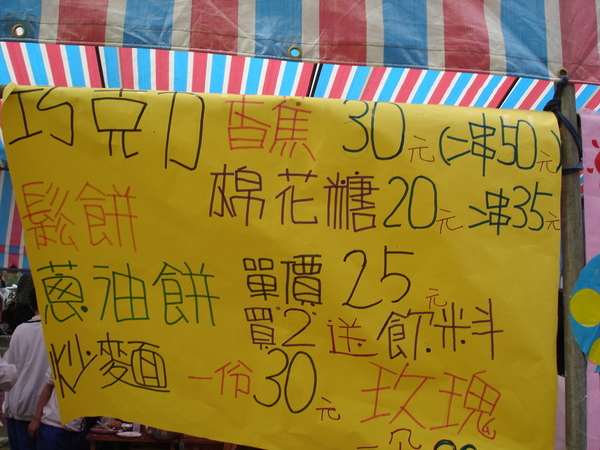 巧克力香焦 30元 (二串50元)
棉花糖20元 2串35元
鬆餅
蔥油餅 單價25元
買2送飲料
炒麵 一份30元 玫瑰
一朵